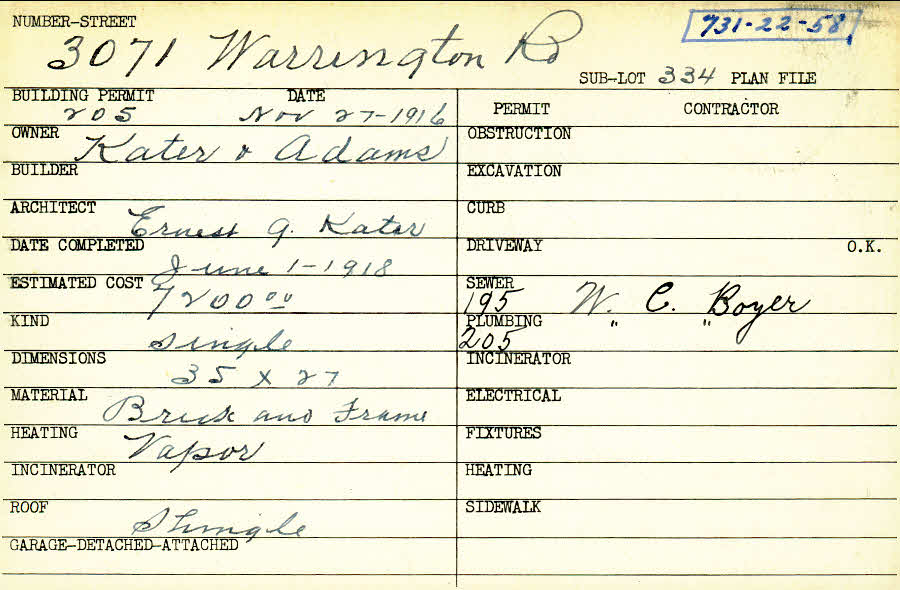 NUMBER-STREET
731-22-58
3071 Warrington Rd
SUB-LOT 334 PLAN FILE
BUILDING PERMIT DATE
205 Nov 27-1916
OWNER Kater & Adams
BUILDER
ARCHITECT Ernest G. Kater
DATE COMPLETED June 1-1918
ESTIMATED COST 7200 00
KIND Single
DIMENSIONS 35 x 27
MATERIAL Brick and Frame
HEATING Vapor
INCINERATOR
ROOF Shingle
GARAGE-DETACHED-ATTACHED
PERMIT CONTRACTOR
OBSTRUCTION
EXCAVATION
CURB
DRIVEWAY O.K.
SEWER
195 W. C. Boyer
PLUMBING " "
205
INCINERATOR
ELECTRICAL
FIXTURES
HEATING
SIDEWALK